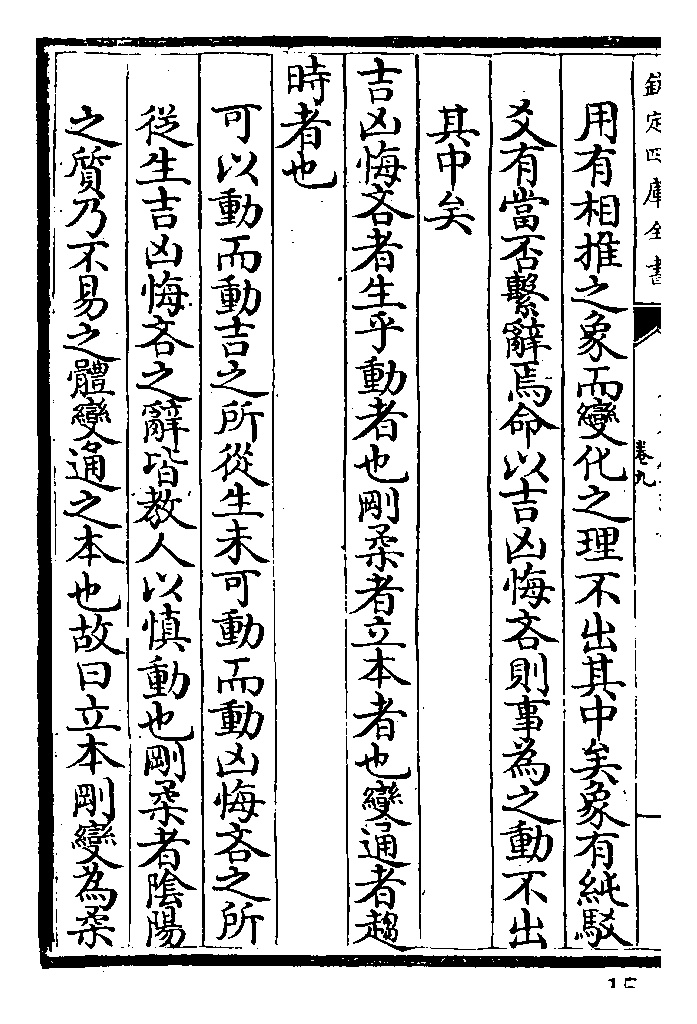 欽定四庫全書
卷九
用有相推之象而變化之理不出其中矣象有純駁
爻有當否繫辭焉命以吉凶悔吝則事為之動不出
其中矣
吉凶悔吝者生乎動者也剛柔者立本者也變通者趨
時者也
可以動而動吉之所從生未可動而動凶悔吝之所
從生吉凶悔吝之辭皆教人以慎動也剛柔者陰陽
之質乃不易之體變通之本也故曰立本剛變為柔